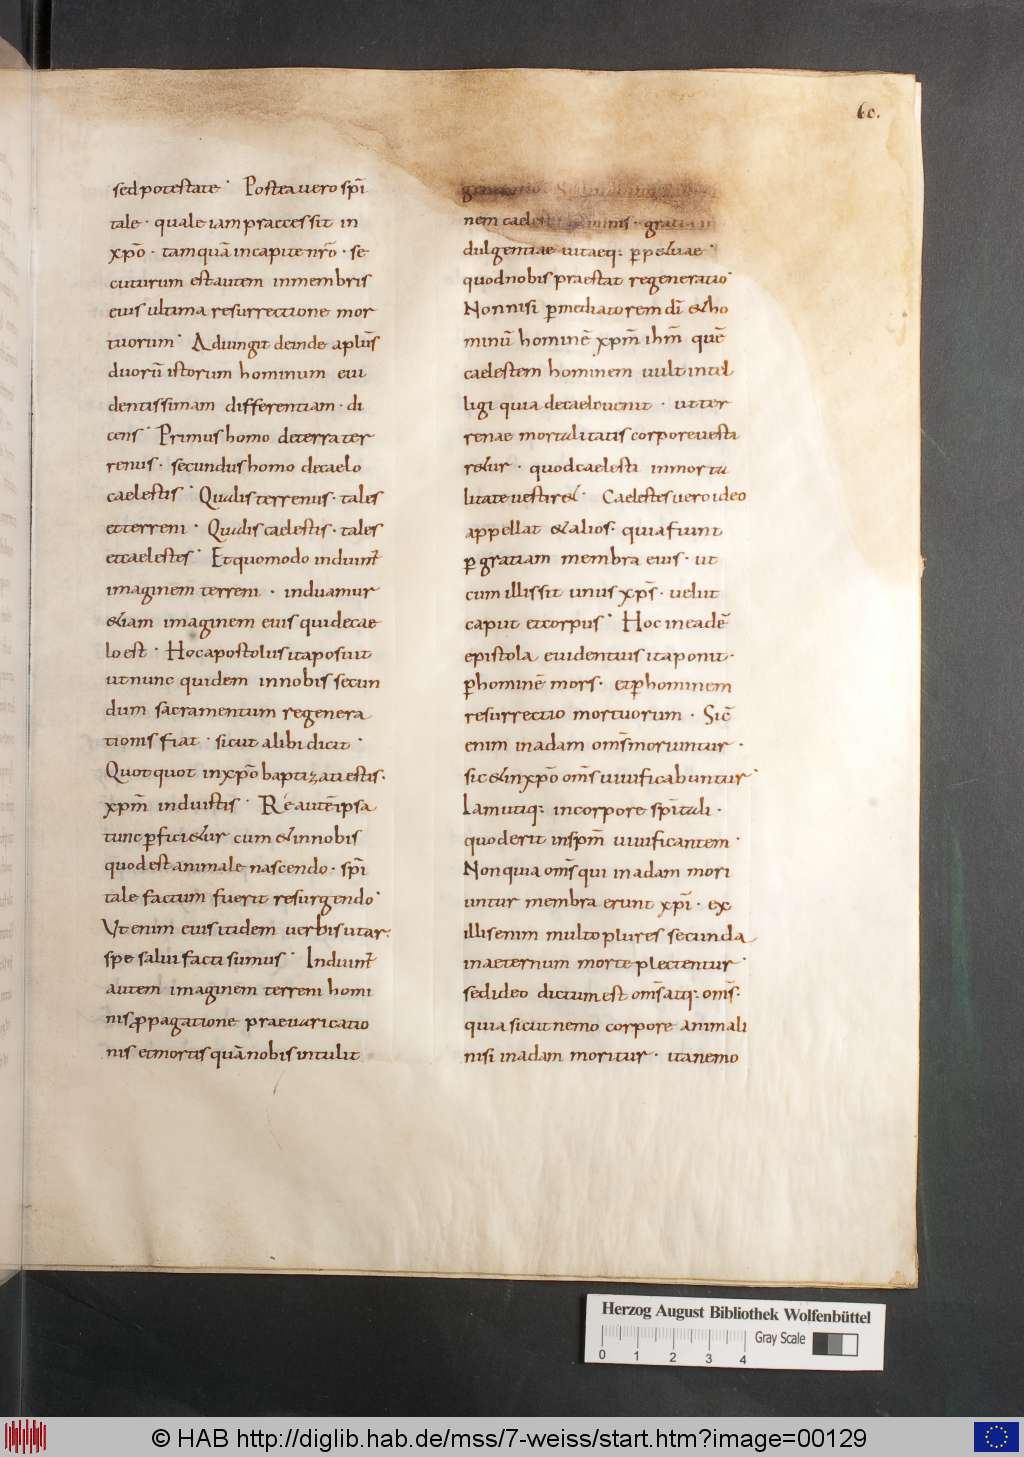 60.
sed potestate · Postea uero sp̄i
tale · quale iam praecessit in
xp̄o · tamquā in capite nr̄o · se
cuturum est autem in membris
eius ultima resurrectione mor
tuorum · Adiungit deinde aplūs
duorū istorum hominum eui
dentissimam differentiam · di
cens · Primus homo de terra ter
renus · secundus homo de caelo
caelestis · Qualis terrenus · tales
et terreni · Qualis caelestis · tales
et caelestes · Et quomodo induim̄
imaginem terreni · induamur
&iam imaginem eius qui de cae
lo est · Hoc apostolus ita posuit
ut nunc quidem in nobis secun
dum sacramentum regenera
tionis fiat · sicut alibi dicit ·
Quotquot in xp̄o baptizati estis ·
xp̄m induistis · Re autē ipsa
tunc ꝑfici&ur cum & in nobis
quod est animale nascendo · sp̄i
tale factum fuerit resurgendo ·
Ut enim eius itidem uerbis utar ·
spe salui facti sumus · Induim̄
autem imaginem terreni homi
nis ꝓpagatione praeuaricatio
nis et mortis quā nobis intulit
nem caelest hominis · grati in
dulgentiae uitaeq; ꝑp&uae ·
quod nobis praestat regeneratio ·
Non nisi ꝑ mediatorem dī & ho
minū hominē xp̄m ihm̄ quē
caelestem hominem uult intel
ligi quia de caelo uenit · ut ter
renae mortalitatis corpore uesti
r&ur · quod caelesti inmorta
litate uestir& · Caelestes uero ideo
appellat & alios · quia fiunt
ꝑ gratiam membra eius · ut
cum illis sit unus xp̄s · uelut
caput et corpus · Hoc in eadē
epistola euidentius ita ponit ·
ꝑ hominē mors · et ꝑ hominem
resurrectio mortuorum · Sic̄
enim in adam om̄s moriuntur ·
sic & in xp̄o om̄s uiuificabuntur ·
Iam utiq; in corpore sp̄itali ·
quod erit in sp̄m uiuificantem ·
Non quia om̄s qui in adam mori
untur membra erunt xp̄i · ex
illis enim multo plures secunda
in aeternum morte plectentur ·
sed ideo dictum est om̄s atq; om̄s ·
quia sicut nemo corpore animali
nisi in adam moritur · ita nemo
Herzog August Bibliothek Wolfenbüttel
Gray Scale
0 1 2 3 4
© HAB http://diglib.hab.de/mss/7-weiss/start.htm?image=00129